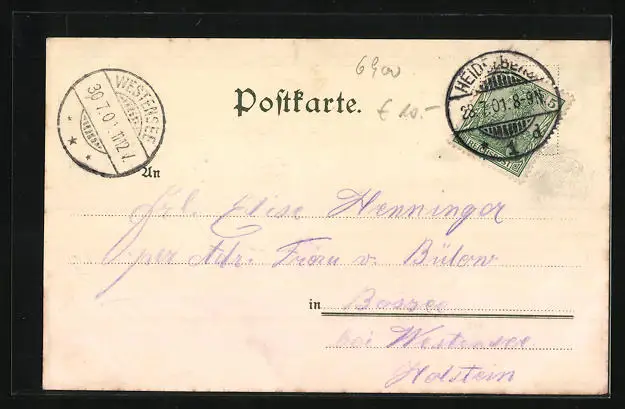 6900
Postkarte.
€ 10.-
HEIDELBERG
28.7.01. 8-9N.
* 1 d
5
REICHSPOST
WESTENSEE
30.7.01. 11-12V.
An
Frl. Elise Henninger
per Adr. Frau v. Bülow
in Bossee
bei Westensee
Holstein